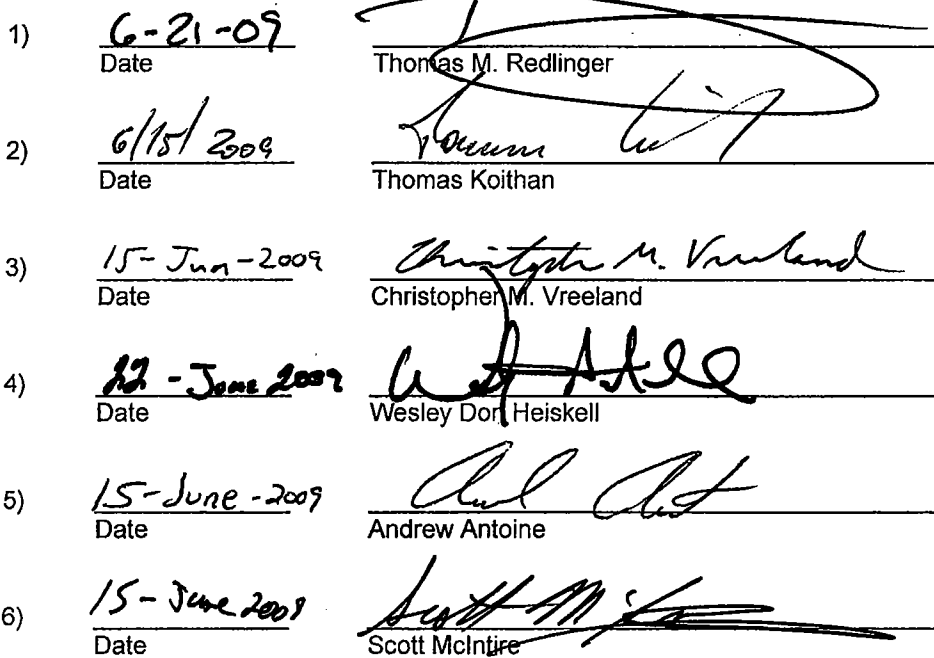 1) 6-21-09
Date Thomas M. Redlinger
2) 6/15/2009
Date Thomas Koithan
3) 15-Jun-2009 Christopher M. Vreeland
Date Christopher M. Vreeland
4) 22-June 2009
Date Wesley Don Heiskell
5) 15-June-2009
Date Andrew Antoine
6) 15-June 2009 Scott M
Date Scott McIntire